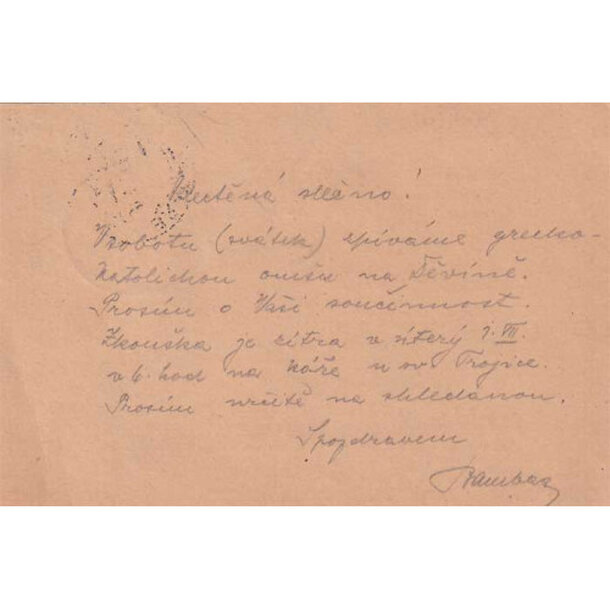 Velectěná slečno!
V sobotu (svátek) zpíváme grecko-
katolickou omšu na Děvíně.
Prosím o Vaši součinnost.
Zkouška je zítra v úterý 1. VII.
v 6. hod na kůře u sv Trojice.
Prosím určitě na shledanou.
S pozdravem